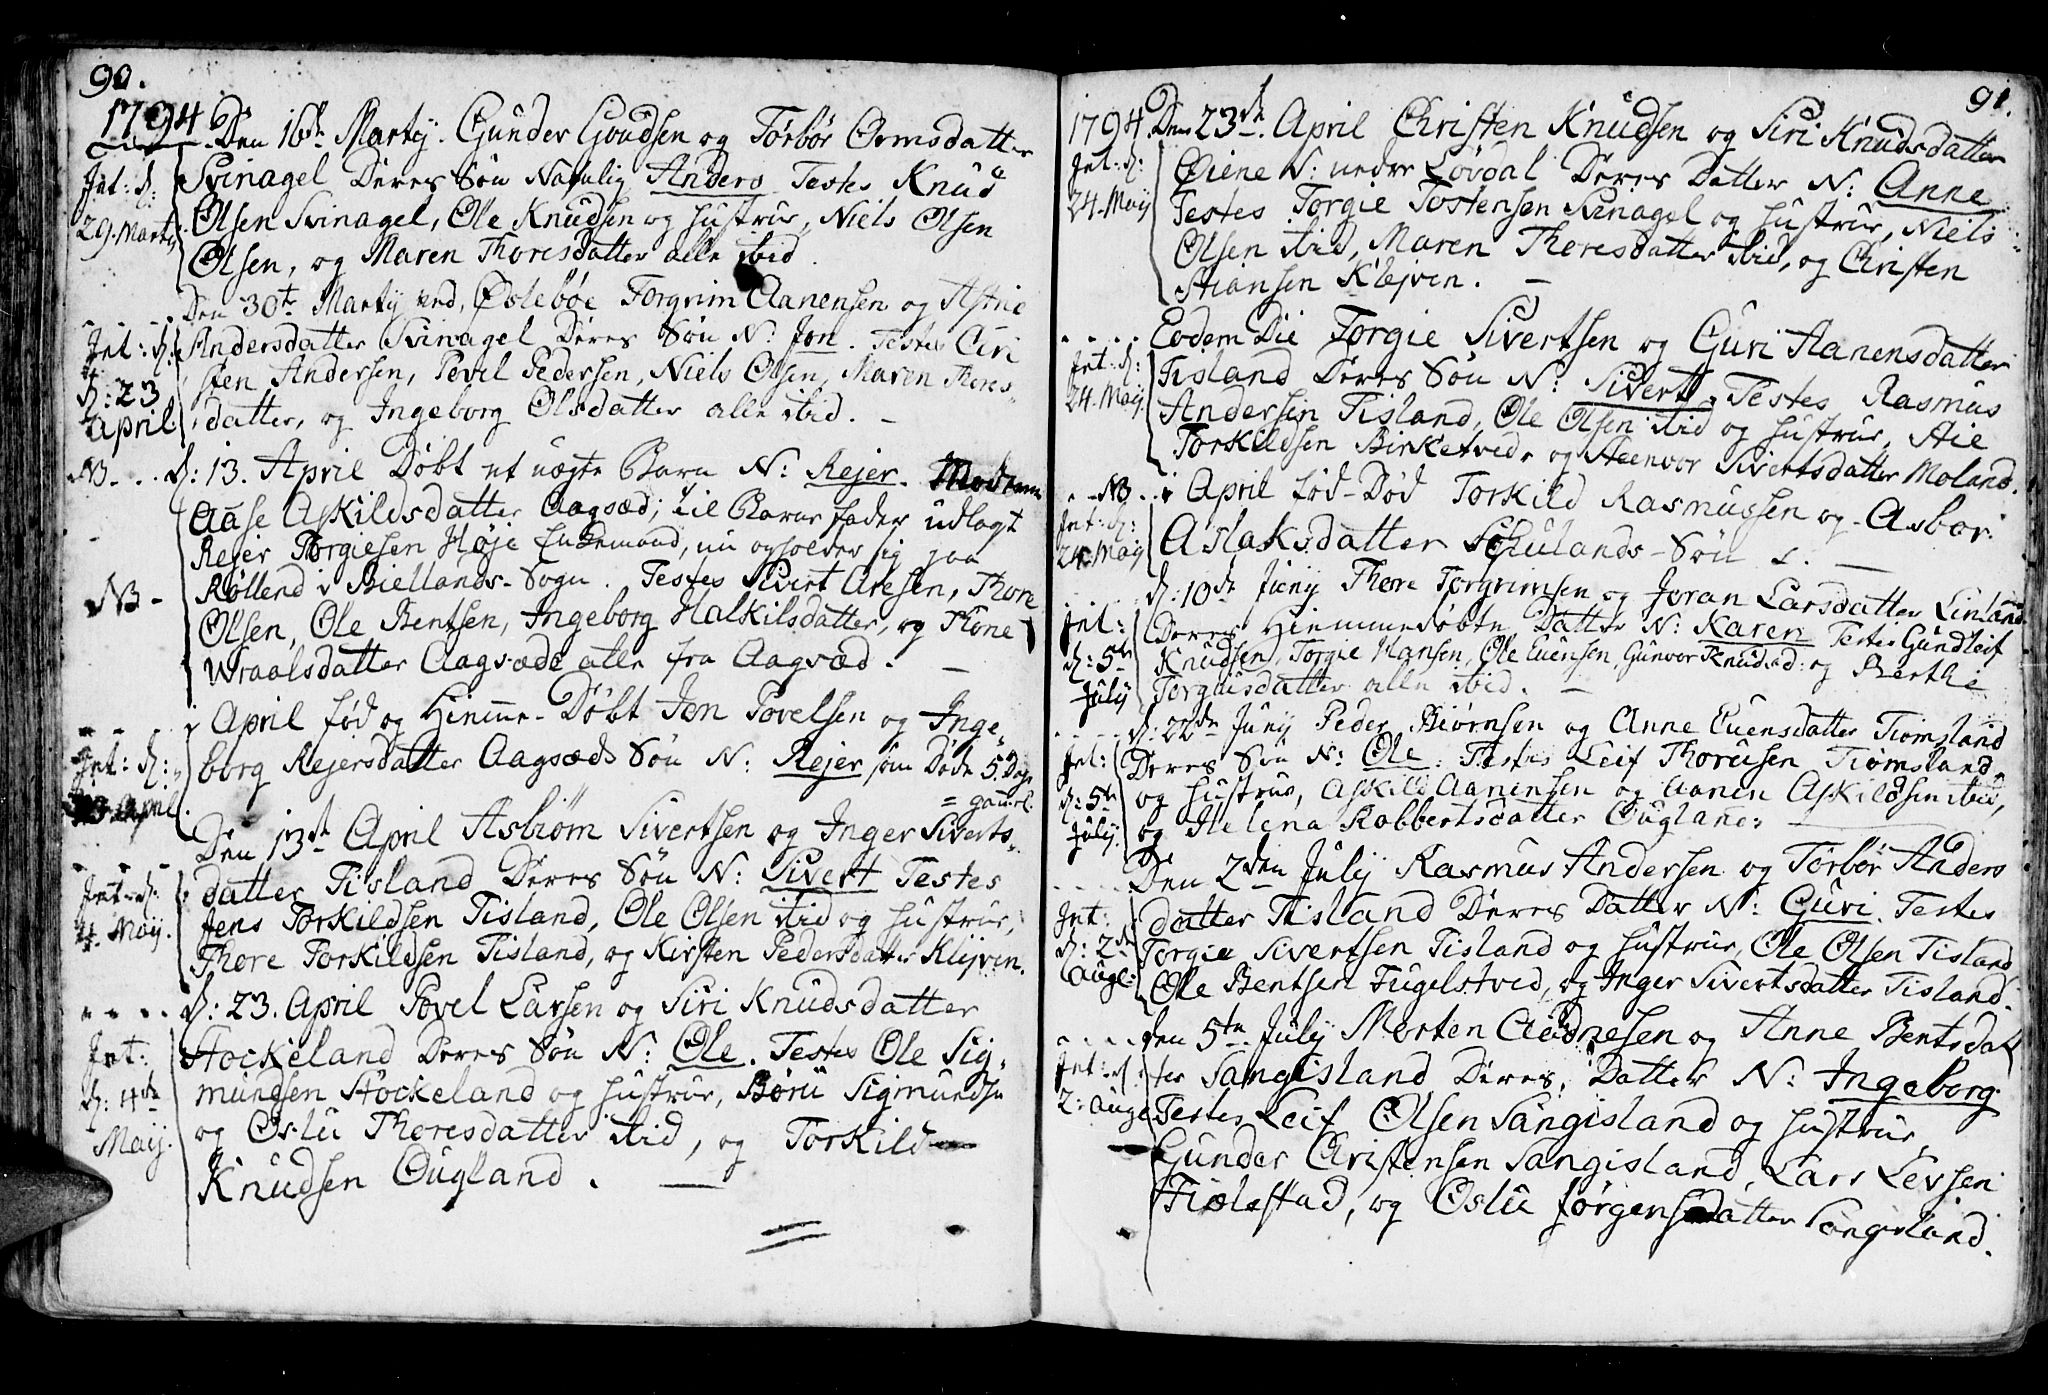 90.
1794 Den 16de Martij. Gunder Goudsen og Torbor Ormsdatter
Int: d: Svinagel Deres Søn Navnlig Anders Testes Knud
29. Martij Olsen Svinagel, Ole Knudsen og hustrue, Niels Olsen
Olsen, og Maren Thoresdatter alle ibid.
Den 30te Martij Torgrim Aanensen og Astrie
Int: d: Andersdatter Svinagel Deres Søn N: Jon. Testes Chri
d: 23 sten Andersen, Povel Pedersen, Niels Olsen, Maren Thores-
April datter, og Ingeborg Olsdatter alle ibid. -
NB - - . d: 13. April Døbt et uægte Barn N: Rejer. Moderen
Aase Askildsdatter Aagsæd; til Barne fader udlagt
Rejer Torgiesen Høje Enkemand, nu opholder sig paa
NB - Rølland i Biellands-Sogn. Testes Sivert Aresen, Thore
Olsen, Ole Bentsen, Ingeborg Halkilsdatter, og Thone
Wraalsdatter Aagsæds alle fra Aagsæd. -
i April fød og Hiemme-Døbt Jon Povelsen og Inge,,
Int: d: borg Rejersdatter Aagsæds Søn N: Rejer som Døde 5. Dage
April. = gamel.
Den 13de April Asbiøm Sivertsen og Inger Siverts,,
Int: d: datter Tisland Deres Søn N: Sivert Testes
4. Maij. Jens Torkildsen Tisland, Ole Olsen ibid og hustrue,
Thore Torkildsen Tisland, og Kirsten Pedersdatter Klejven.
d: 23. April Povel Larsen og Siri Knudsdatter
Int: Stockeland Deres Søn N: Ole. Testes Ole Sig,,
d: 4de mundsen Stockeland og hustrue, Børu Sigmundsen
Maij. og Oslu Thoresdatter ibid, og Torkild
Knudsen Ougland. -
91.
1794. Den 23de April Christen Knudsen og Siri Knudsdatter
Int: d: Øiene N: nedre Løvdal Deres Datter N: Anne
24. Maij Testes Torgie Tostensen Svinagel og hustrue, Niels
Olsen ibid, Maren Thoresdatter ibid, og Christen
Stiansen Klejven. -
Eodem Die Torgie Sivertsen og Guri Aanensdatter
Int: d: Tisland Deres Søn N: Sivert. Testes Rasmus
24. Maij. Andersen Tisland, Ole Olsen ibid og hustrue, Aie
Torkildsen Birketved, og Steenvor Sivertsdatter Moland.
- - NB - - i April fød-Død Torkild Rasmussen og Asbor
Int: d: 24. Maij Aslaksdatter Schulands-Søn -
d: 10de Junij Thore Torgrimsen og Joran Larsdatter Linland
Int: Deres Hiemmedøbte Datter N: Karen Testes Gundleif
d: 5te Knudsen, Torgie Hansen, Ole Euensen, Gunvor Knudsd: og Berthe
Julij Torgiusdatter alle ibid. -
d: 22de Junij Peder Biørnsen og Anne Euensdatter Tiomsland
Int: Deres Søn N: Ole. Testes Leif Thorusen Tiomsland
d: 5te og hustrue, Askild Aanensen og Aanen Askildsen ibid,
Julij. og Helena Robbertsdatter Ougland.
Den 2den Julij Rasmus Andersen og Torbor Anders
Int: datter Tisland Deres Datter N: Guri. Testes
d: 2de Torgie Sivertsen Tisland og hustrue, Ole Olsen Tisland,
Auge: Ole Bentsen Fugelstved, og Inger Sivertsdatter Tisland.
den 5te Julij Morten Audnesen og Anne Bentsdat
Int: d: ter Sangisland Deres Datter N: Ingeborg.
2: Auge Testes Leif Olsen Sangisland og hustrue,
Gunder Christensen Sangisland, Lars Levsen
Fiælestad, og Oslu Jørgensdatter Sangisland.